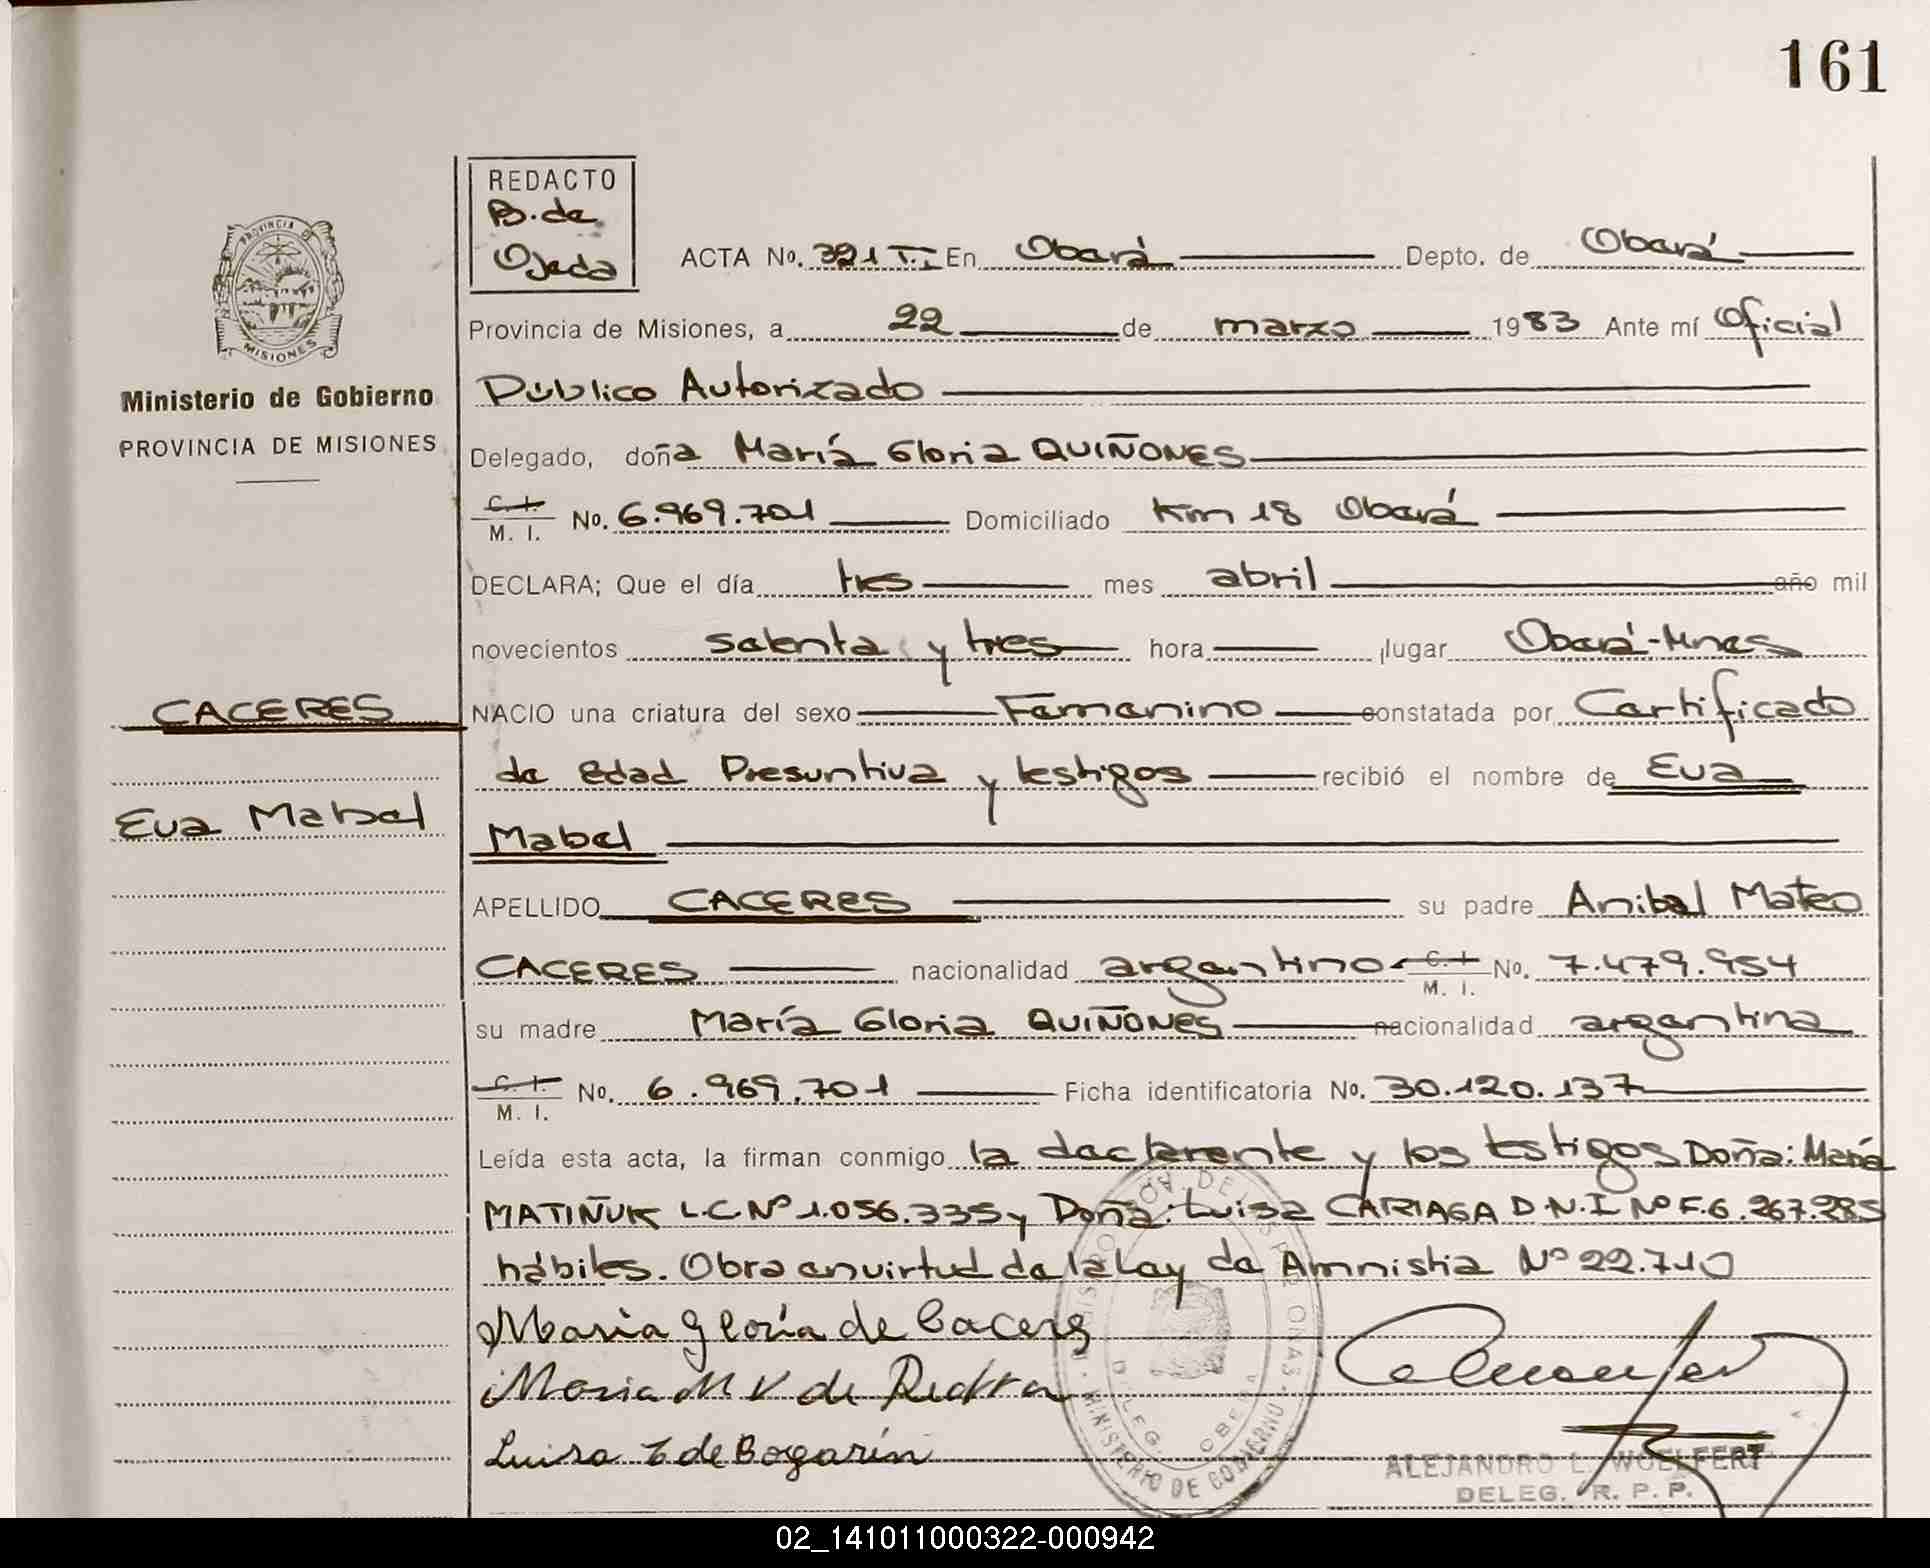 161
REDACTO
B. de
Ojeda
PROVINCIA DE
MISIONES
Ministerio de Gobierno
PROVINCIA DE MISIONES
CACERES
Eva Mabel
ACTA No. 321 T.I En Oberá Depto. de Oberá
Provincia de Misiones, a 22 de marzo 1983 Ante mí Oficial
Público Autorizado
Delegado, doña María Gloria QUIÑONES
C. I.
M. I. No. 6.969.701 Domiciliado Km 18 Oberá
DECLARA; Que el día tres mes abril año mil
novecientos setenta y tres hora lugar Oberá-Mnes
NACIO una criatura del sexo Femenino constatada por Certificado
de edad Presuntiva y testigos recibió el nombre de Eva
Mabel
APELLIDO CACERES su padre Anibal Mateo
CACERES nacionalidad argentino C. I. M. I. No. 7.479.954
su madre María Gloria QUIÑONES nacionalidad argentina
C. I.
M. I. No. 6.969.701 Ficha identificatoria No. 30.120.137
Leída esta acta, la firman conmigo la declarente y los testigos Doña: María
MATIÑUK L.C Nº 1.056.335 y Doña: Luisa CARIAGA D.N.I Nº F.6.267.285
hábiles. Obra en virtud de la Ley de Amnistia Nº 22.710
Maria Gloria de Caceres
Maria M V de
Luisa de Bogarín
MINISTERIO DE GOBIERNO
DELEG. OBERA
ALEJANDRO L. WOELFERT
DELEG. R. P. P.
02_141011000322-000942